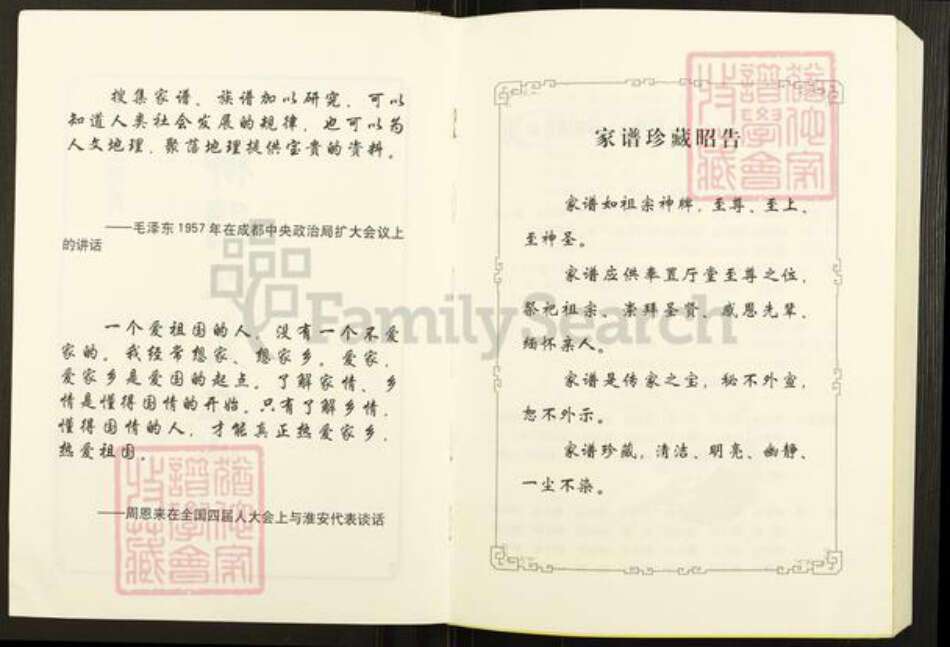 搜集家谱、族谱加以研究，可以
知道人类社会发展的规律，也可以为
人文地理，聚落地理提供宝贵的资料。
——毛泽东1957年在成都中央政治局扩大会议上
的讲话
一个爱祖国的人，没有一个不爱
家的。我经常想家、想家乡。爱家，
爱家乡是爱国的起点。了解家情、乡
情是懂得国情的开始。只有了解乡情，
懂得国情的人，才能真正热爱家乡，
热爱祖国。
——周恩来在全国四届人大会上与淮安代表谈话
家谱珍藏昭告
家谱如祖宗神牌，至尊、至上、
至神圣。
家谱应供奉置厅堂至尊之位，
祭祀祖宗、崇拜圣贤、感恩先辈、
缅怀亲人。
家谱是传家之宝，秘不外宣，
恕不外示。
家谱珍藏，清洁、明亮、幽静、
一尘不染。
FamilySearch